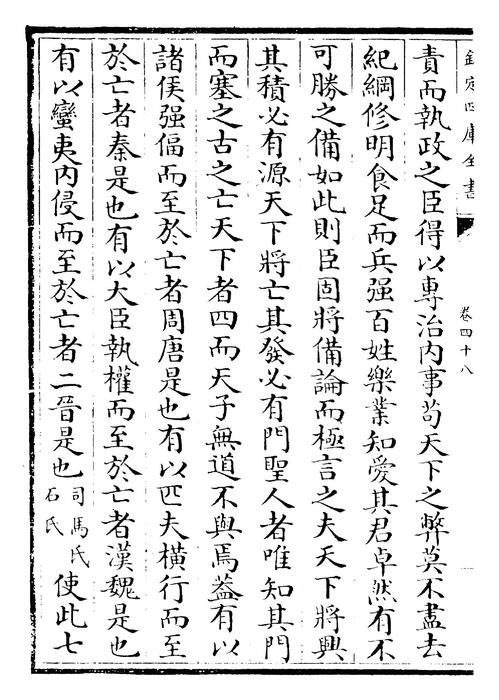 欽定四庫全書
卷四十八
責而執政之臣得以專治內事茍天下之弊莫不盡去
紀綱修明食足而兵强百姓樂業知愛其君卓然有不
可勝之備如此則臣固將備論而極言之夫天下將興
其積必有源天下將亡其發必有門聖人者唯知其門
而塞之古之亡天下者四而天子無道不與焉葢有以
諸侯强偪而至於亡者周唐是也有以匹夫橫行而至
於亡者秦是也有以大臣執權而至於亡者漢魏是也
有以蠻夷內侵而至於亡者二晉是也司馬氏石氏使此七